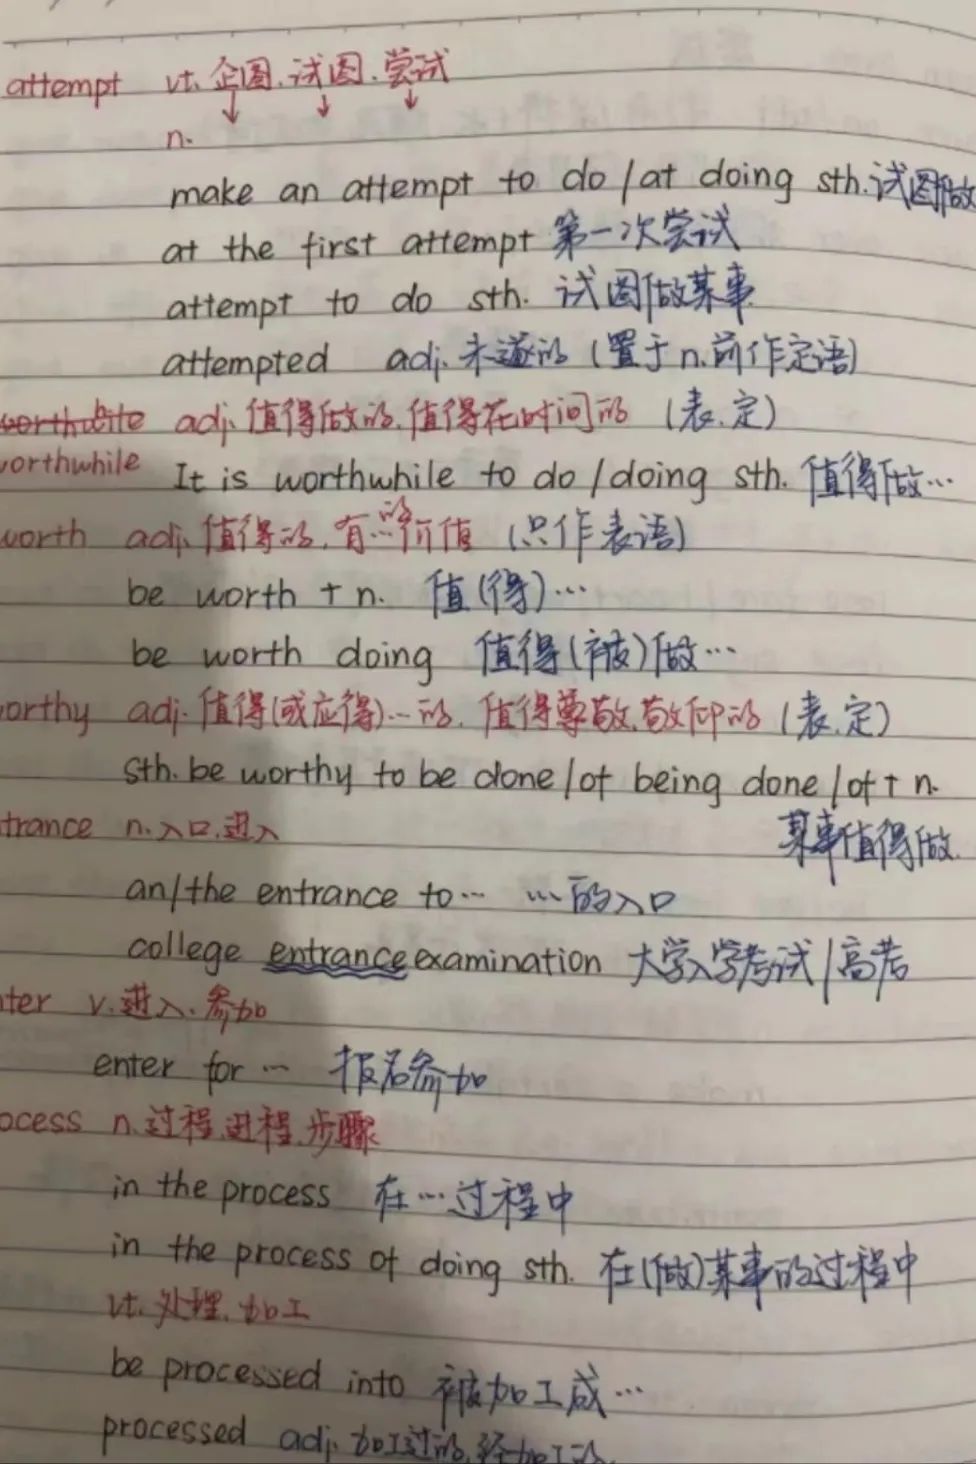 attempt vt. 企图.试图.尝试
n.
make an attempt to do/at doing sth.试图做
at the first attempt 第一次尝试
attempt to do sth. 试图做某事
attempted adj. 未遂的 (置于n.前作定语)
adj. 值得做的.值得花时间的 (表.定)
worthwhile It is worthwhile to do/doing sth. 值得做…
worth adj. 值得的.有…的价值 (只作表语)
be worth + n. 值(得)…
be worth doing 值得(被)做…
orthy adj. 值得(或应得)…的. 值得尊敬.敬仰的 (表.定)
sth. be worthy to be done/of being done/of + n.
某事值得做
trance n.入口.进入
an/the entrance to… …的入口
college entrance examination 大学入学考试/高考
nter v.进入.参加
enter for … 报名参加
ocess n.过程.进程.步骤
in the process 在…过程中
in the process of doing sth. 在(做)某事的过程中
vt. 处理.加工
be processed into 被加工成…
processed adj. 加工过的.经加工的